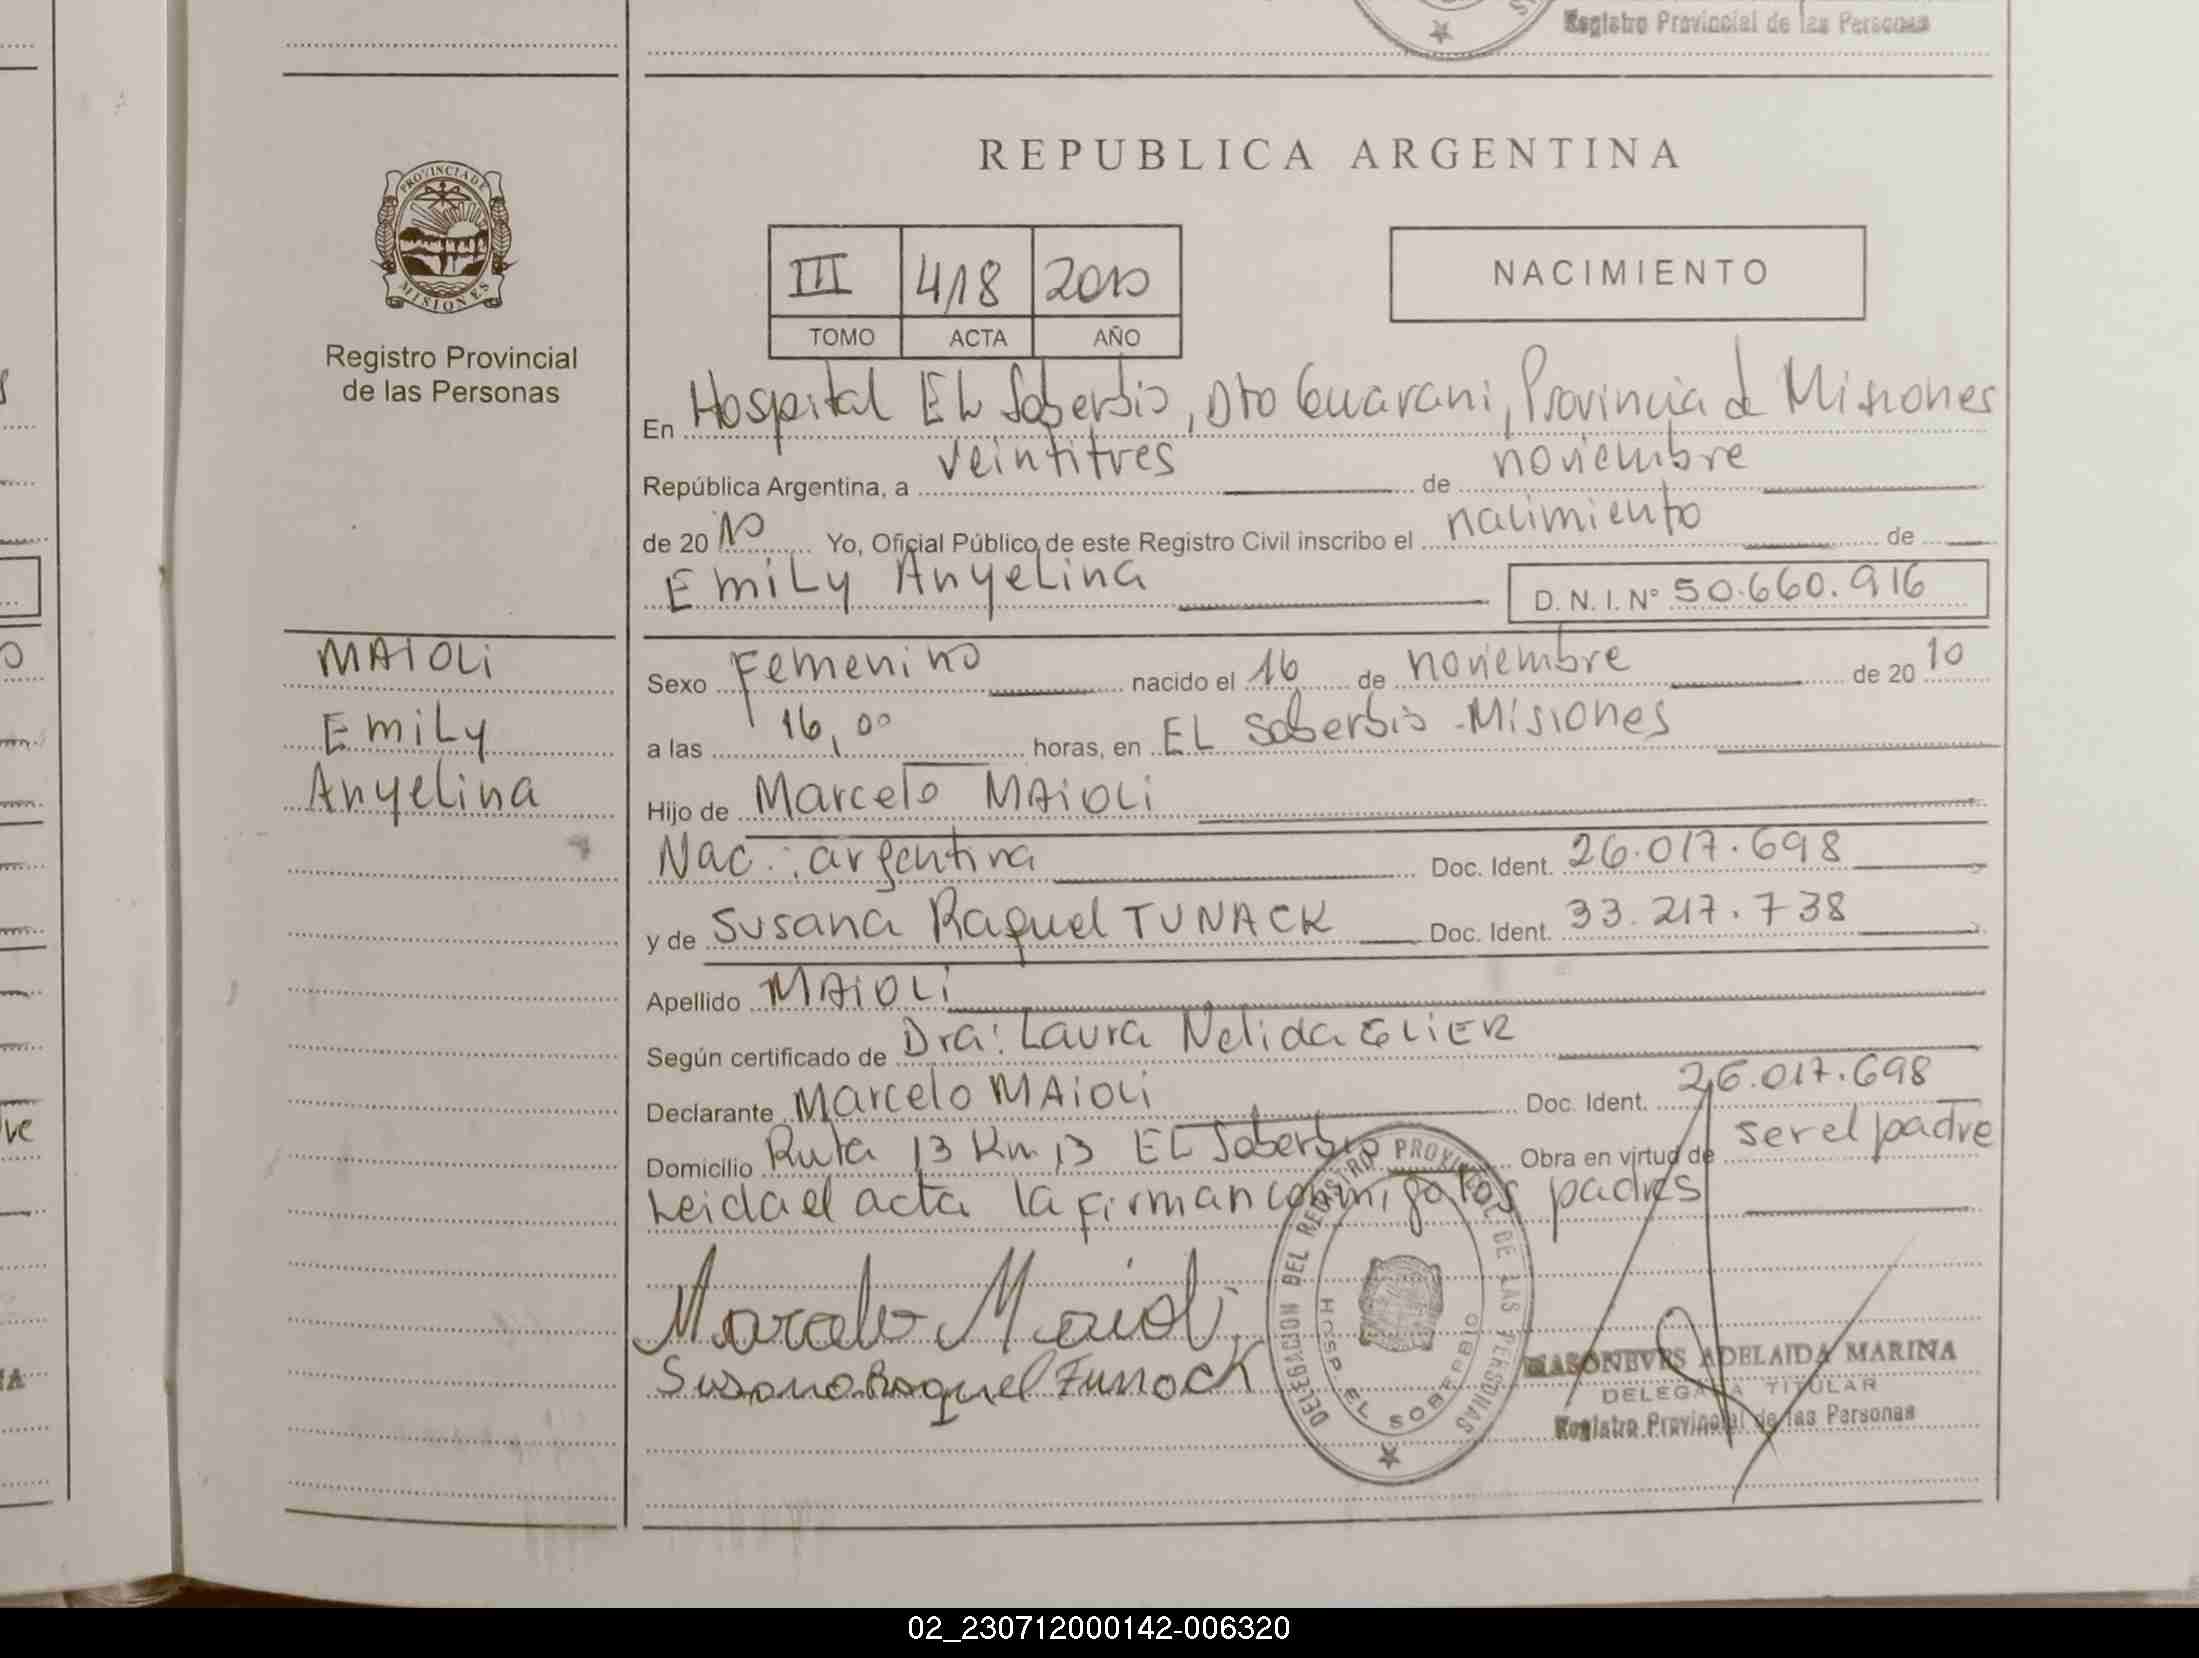 Registro Provincial de las Personas
REPUBLICA ARGENTINA
PROVINCIA DE
MISIONES
Registro Provincial
de las Personas
III 418 2010
TOMO ACTA AÑO
NACIMIENTO
En Hospital EL Soberbio, Dto Guarani, Provincia de Misiones
República Argentina, a veintitres de noviembre
de 20 10 Yo, Oficial Público de este Registro Civil inscribo el nacimiento de
Emily Anyelina D. N. I. N° 50.660.916
MAIOLI
Emily
Anyelina
Sexo Femenino nacido el 16 de noviembre de 20 10
a las 16,00 horas, en EL Soberbio - Misiones
Hijo de Marcelo MAIOLI
Nac.: argentina Doc. Ident. 26.017.698
y de Susana Raquel TUNACK Doc. Ident. 33.217.738
Apellido MAIOLI
Según certificado de Dra: Laura Nelida GLIER
Declarante Marcelo MAIOLI Doc. Ident. 26.017.698
Domicilio Ruta 13 Km 13 EL Soberbio Obra en virtud de ser el padre
Leida el acta la firman conmigo los padres
Marcelo Maioli
Susana Raquel Tunack
DELEGACION DEL REGISTRO PROVINCIAL DE LAS PERSONAS
HOSP. EL SOBERBIO
MASONEVES ADELAIDA MARINA
DELEGADA TITULAR
Registro Provincial de las Personas
02_230712000142-006320